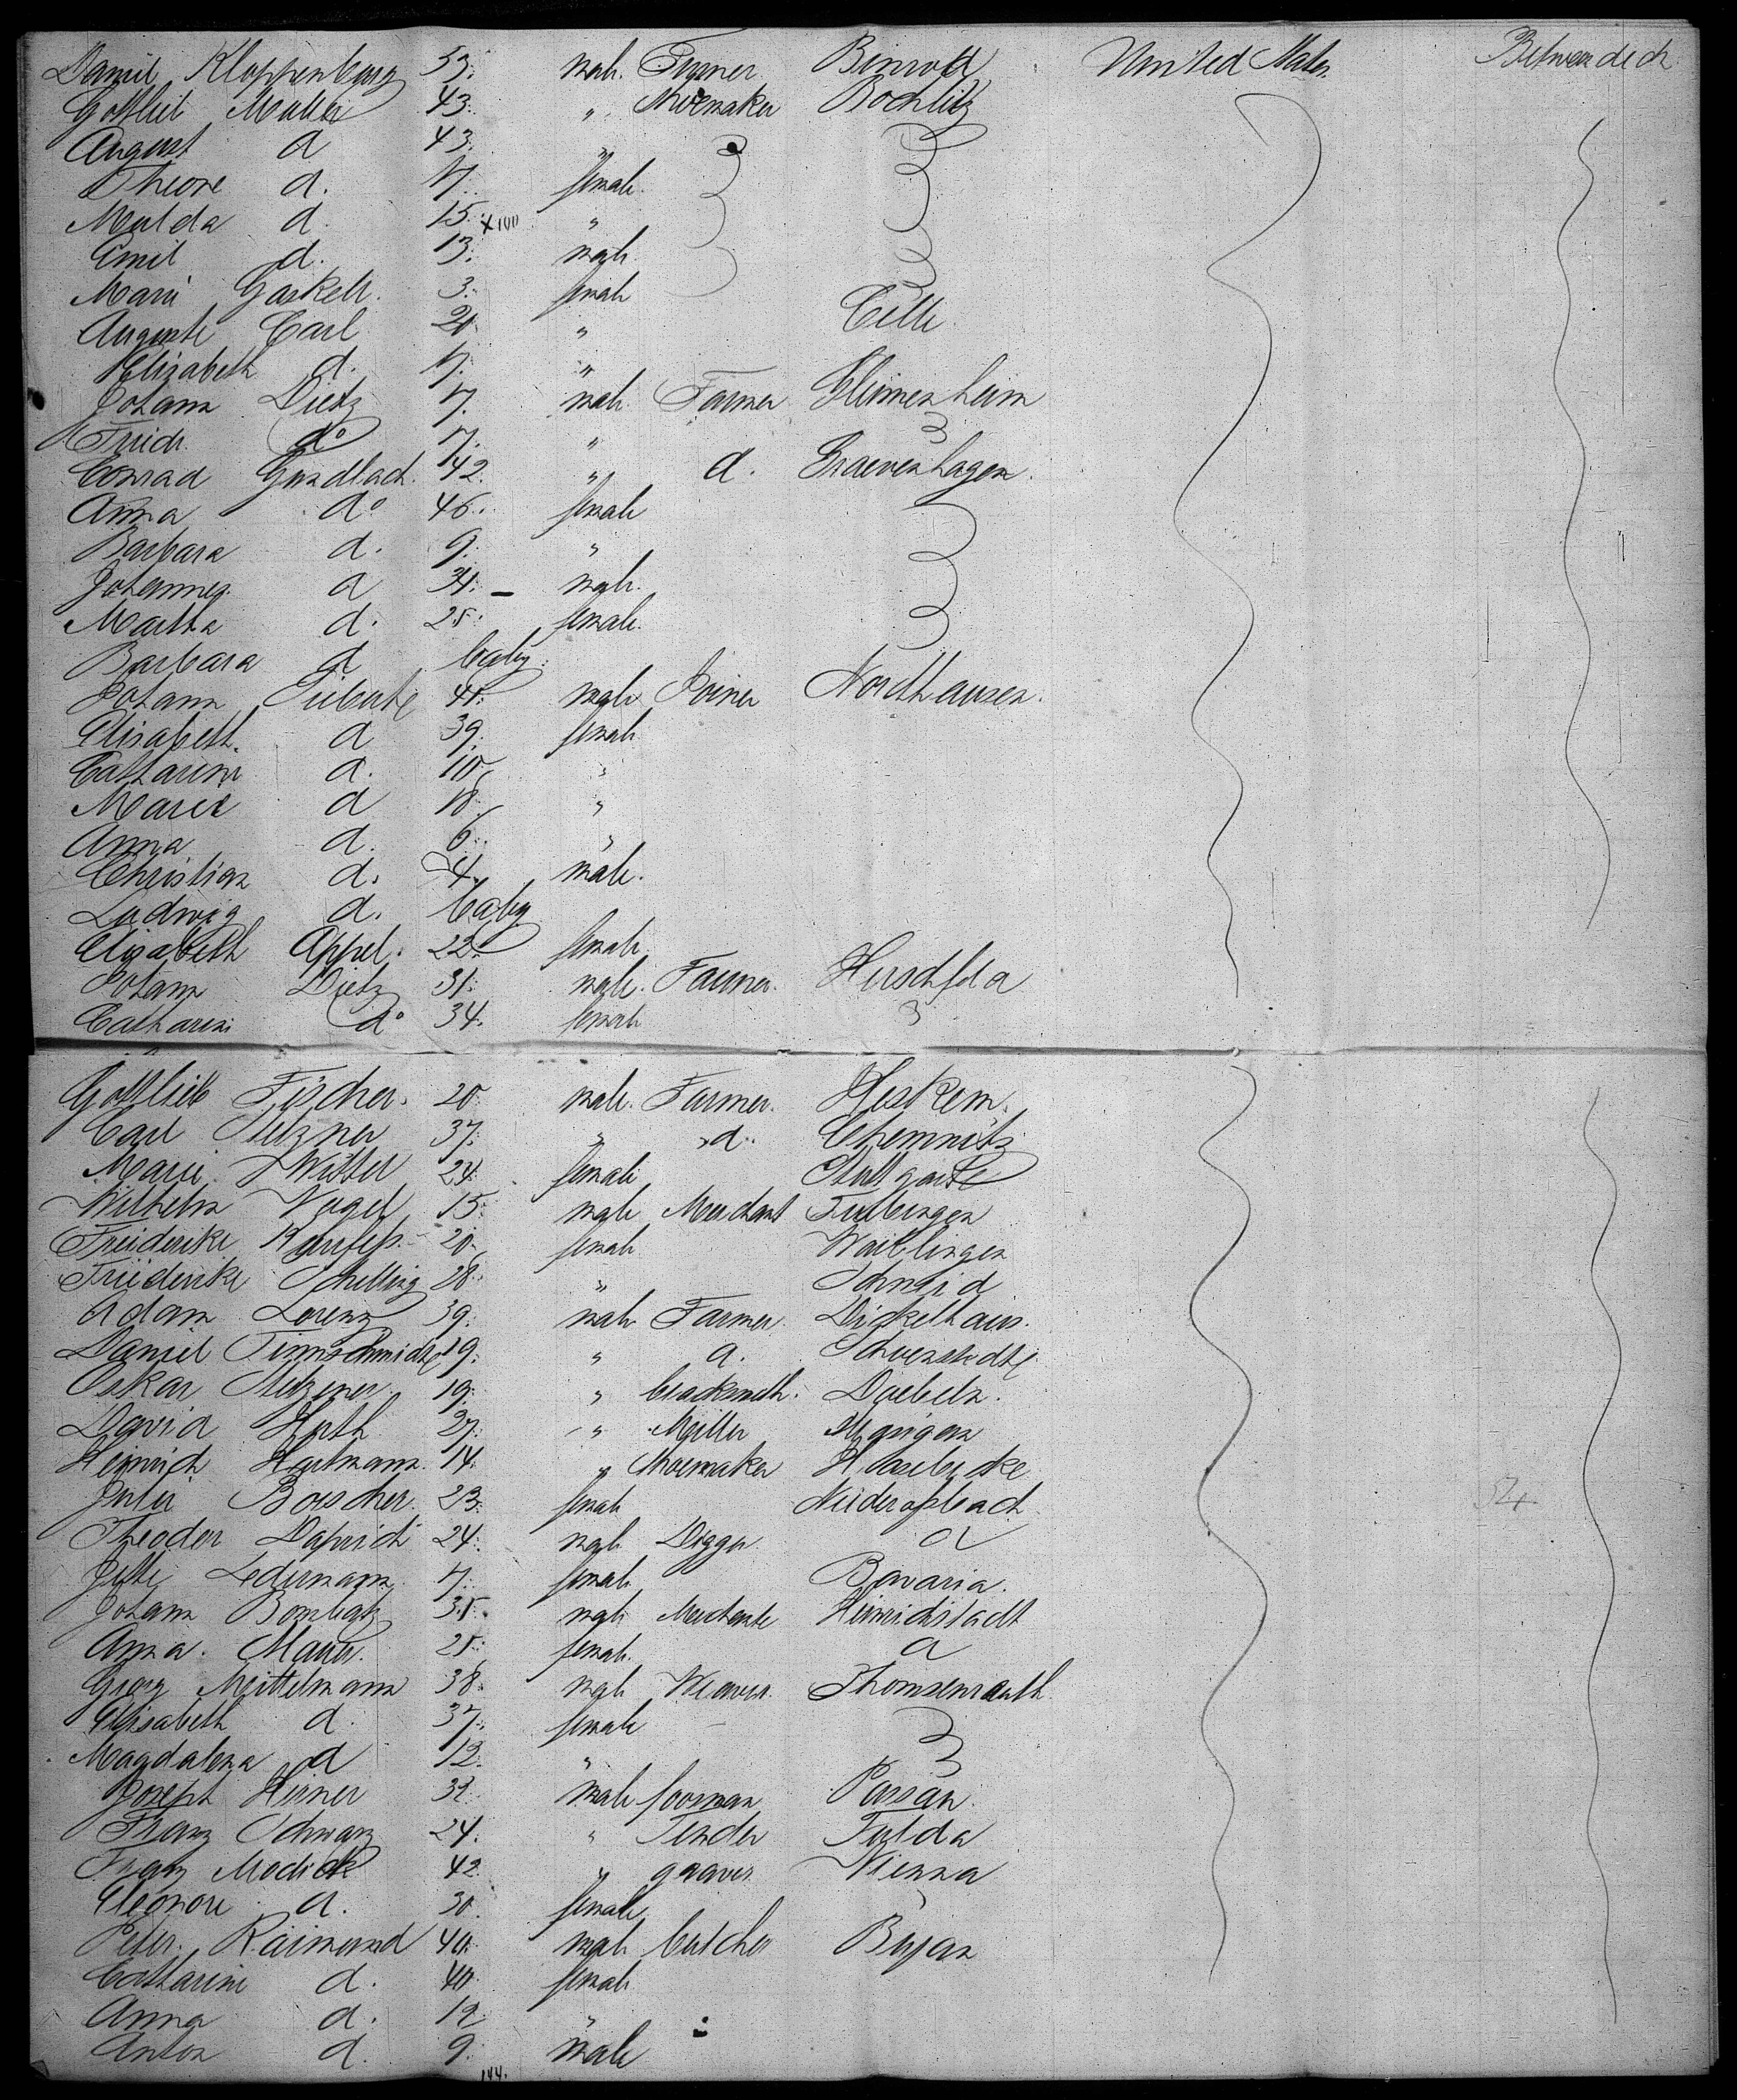 Daniel Kloppenburg 33. male. Turner. Binrod United States Between deck
Gottlieb Muller 43. " Shoemaker Rochlitz
August d 43. "
Theone d. 17. female.
Mulda d. 15. "
Emil d. 13. male
Marie Garkell. 3. female
Auguste Carl 20. " Celle.
Elizabeth d. "
Johann Dietz 17. male Farmer Heimenheim
Friedr. do 17. "
Conrad Gundlach. 42. " d. Graevenhagen.
Anna do 46. female
Barbara d. 9. "
Johannes d 31. male.
Martha d. 25. female.
Barbara d baby.
Johann 41. male Joiner Nordhausen.
Elisabeth. d 39. female
Catharine d. 10. "
Marie d 18. "
Anna d. 6. "
Christian d. 4. male.
Ludwig d. baby
Elizabeth Appel. 22. female
Johann Dietz 31. male. Farmer. Herschfeld
Catharine do 34. female
Gottlieb Fischer. 20. male. Farmer. Heskem.
Carl Stelzner 37. " d. Chemnitz
Marie Witter 24. female Stuttgart
Wilhelm Vogel 15. male Merchant Tubingen
Friederike 20. female Waiblingen
Friederike Schilling 28. " Schmid
Adam Lorenz 39. male Farmer. Dickelhain.
Daniel Timmschmidt 19. " d.
Oskar Stelzner. 19. " blacksmith. Doebeln.
David Huth 27. " Miller
Heinrich Hartmann. 14. " Shoemaker
Julie Boescher. 23. female
Theodor 24. male Digger d
Jette Ledermann. 17. female Bavaria.
Johann 35. male Merchante Heinrichstadt
Anna. Maurer. 25. female. d
Georg Mittelmann 38. male Weaver. Thomsenreuth
Elisabeth d. 37. female
Magdalena d 12. "
Joseph Hirner 32. male foorman Passau.
Franz Schwarz 24. " Tender Fulda
Franz Modick 42. " graver Vienna
Eleonore d. 30. female.
Peter. Raimund 40. male butcher Bujan
Catharine d. 40. female
Anna d. 12. "
Anton d. 9. male
144.